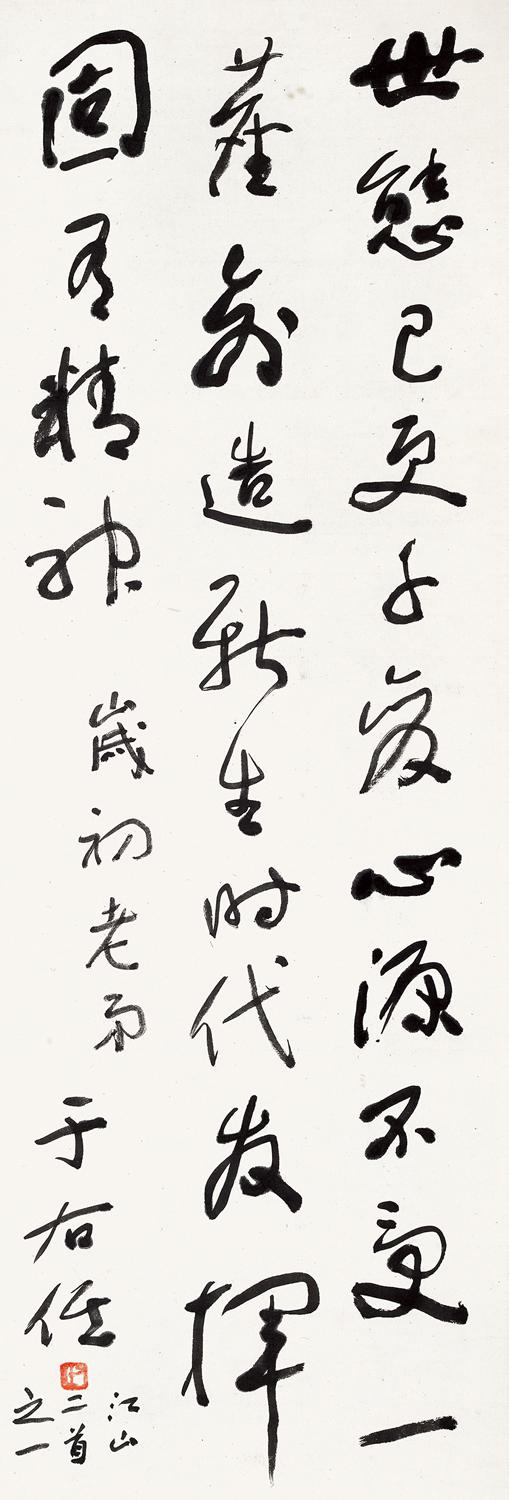 世態已更千變心源不受一
塵創造新生時代發揮
固有精神 歲初老弟 于右任
江山
二首
之一